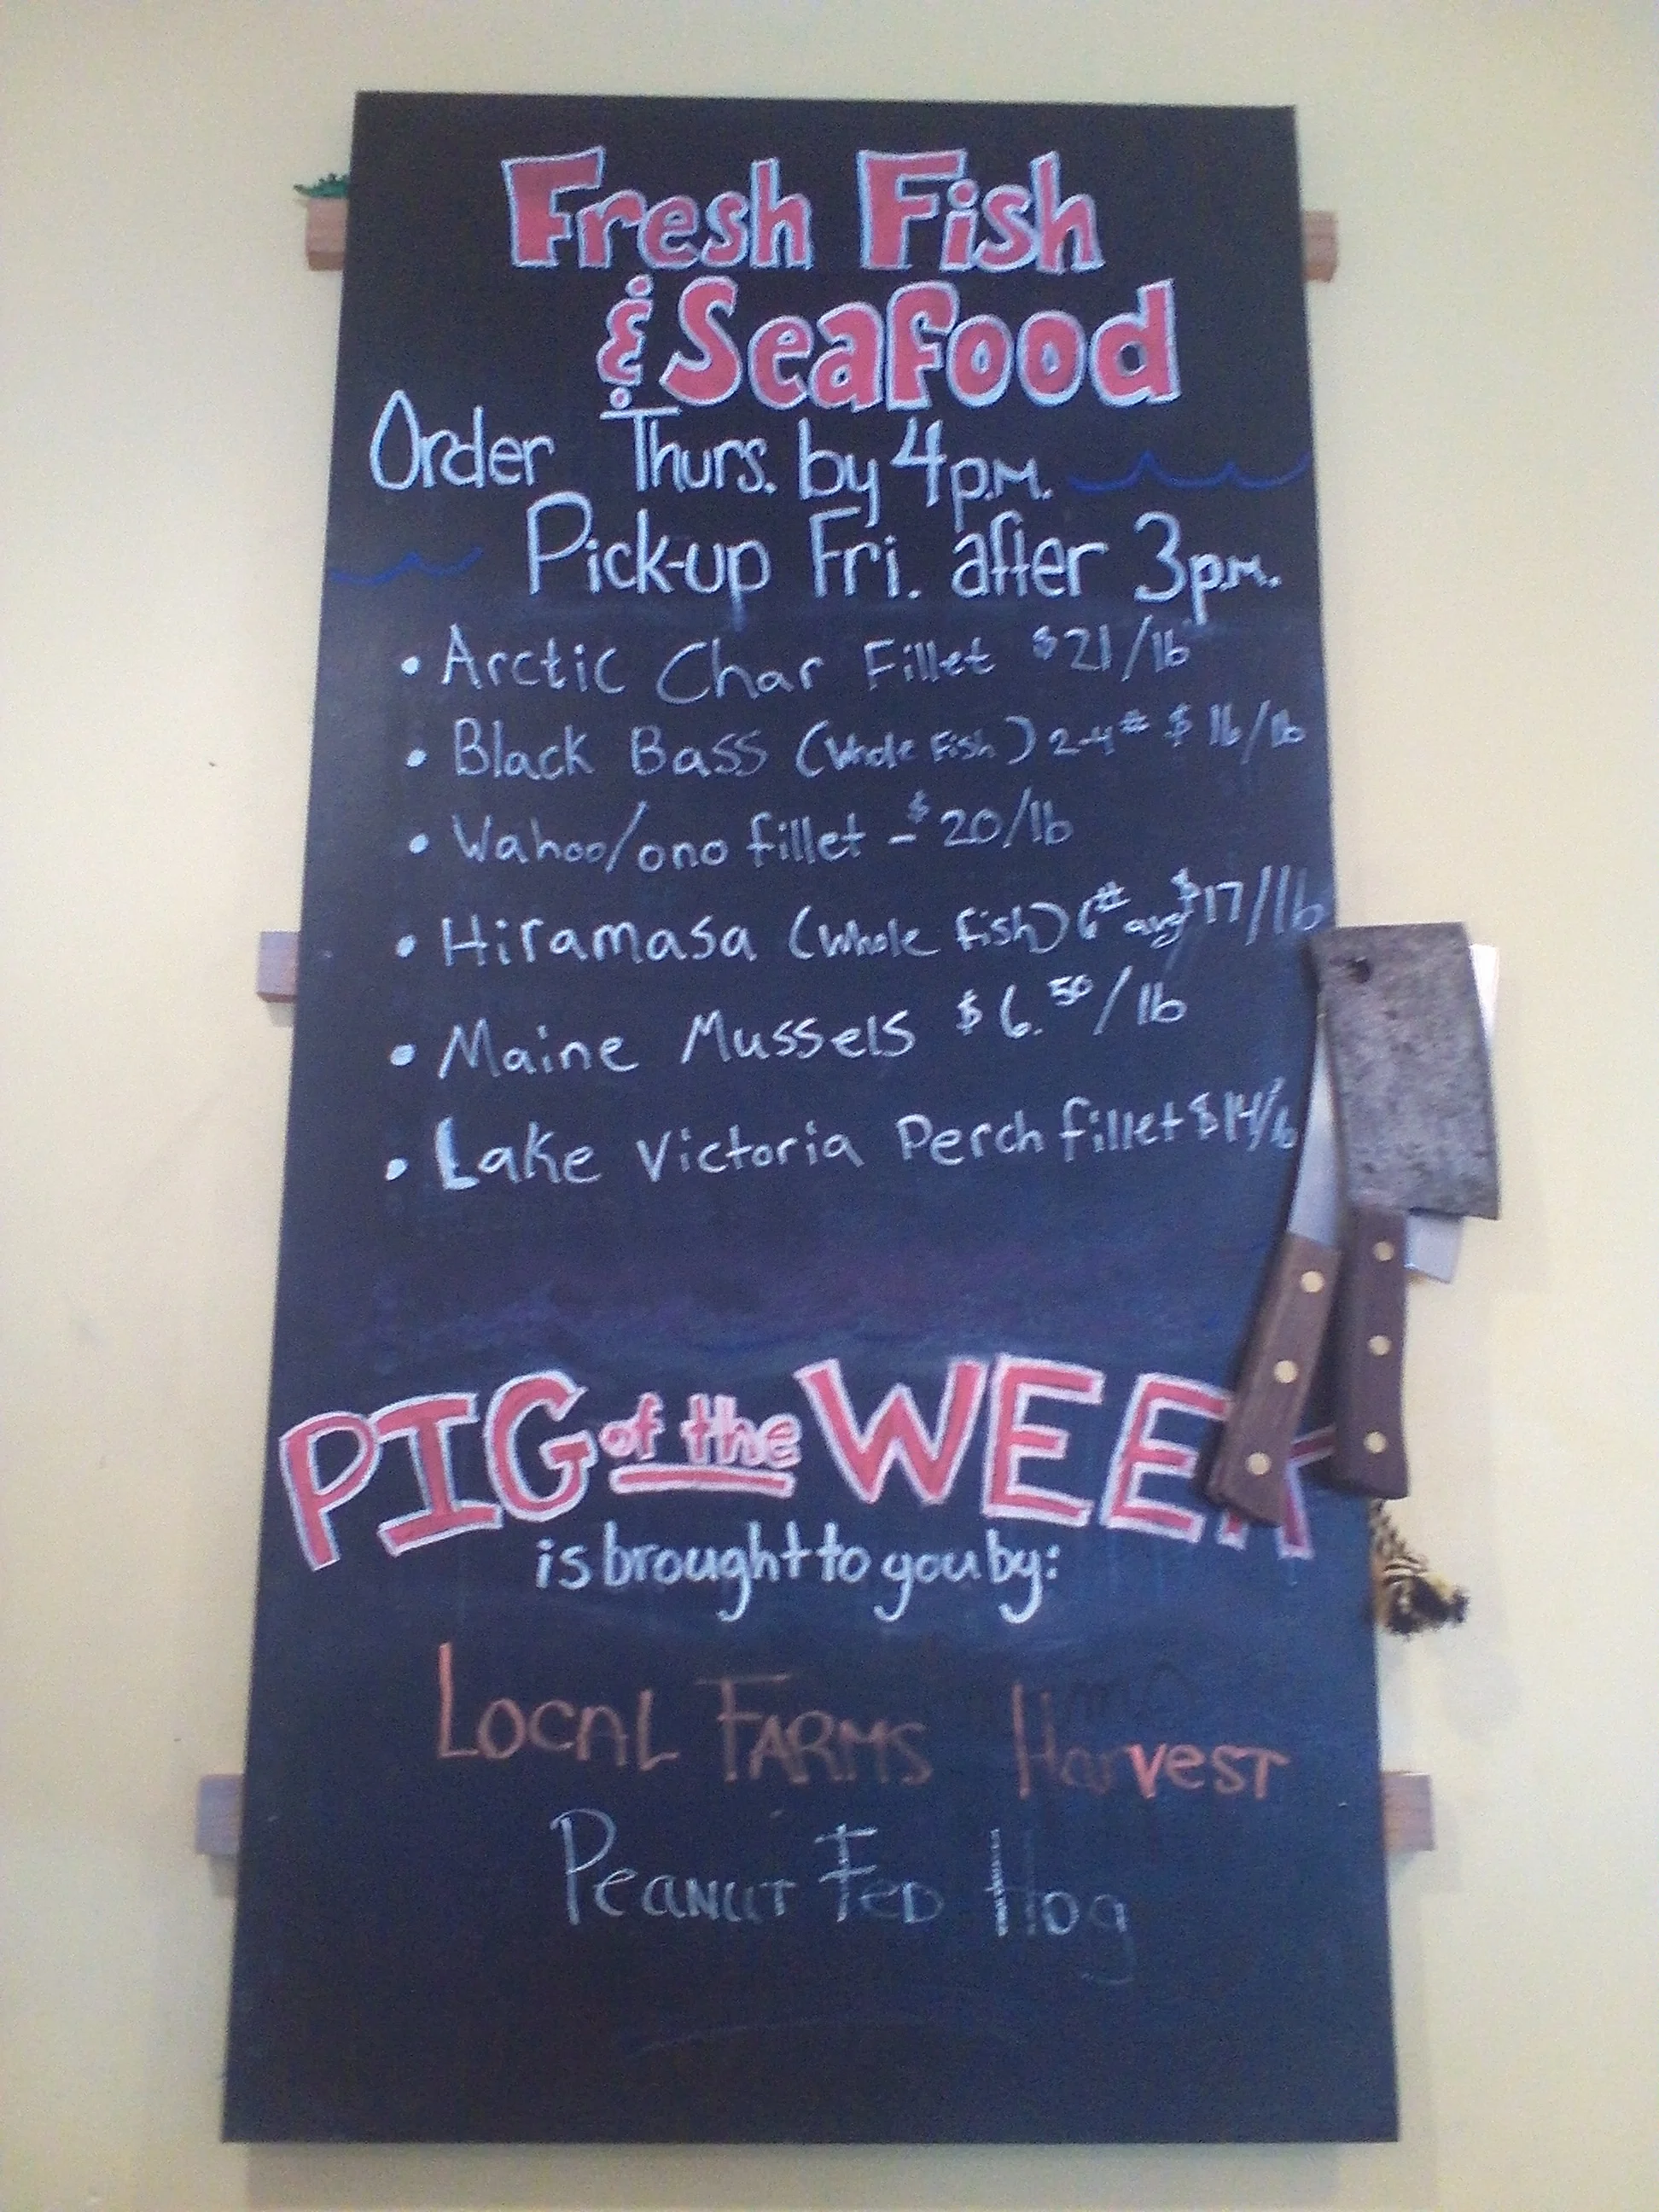 Fresh Fish
& Seafood
Order Thurs. by 4 p.m.
Pick-up Fri. after 3 p.m.
• Arctic Char Fillet $21/lb
• Black Bass (Whole Fish) 2-4# $16/lb
• Wahoo/ono fillet - $20/lb
• Hiramasa (Whole fish) 6# avg $17/lb
• Maine Mussels $6.50/lb
• Lake Victoria Perch fillet $14/lb
PIG of the WEEK
is brought to you by:
Local Farms Harvest
Peanut Fed Hog